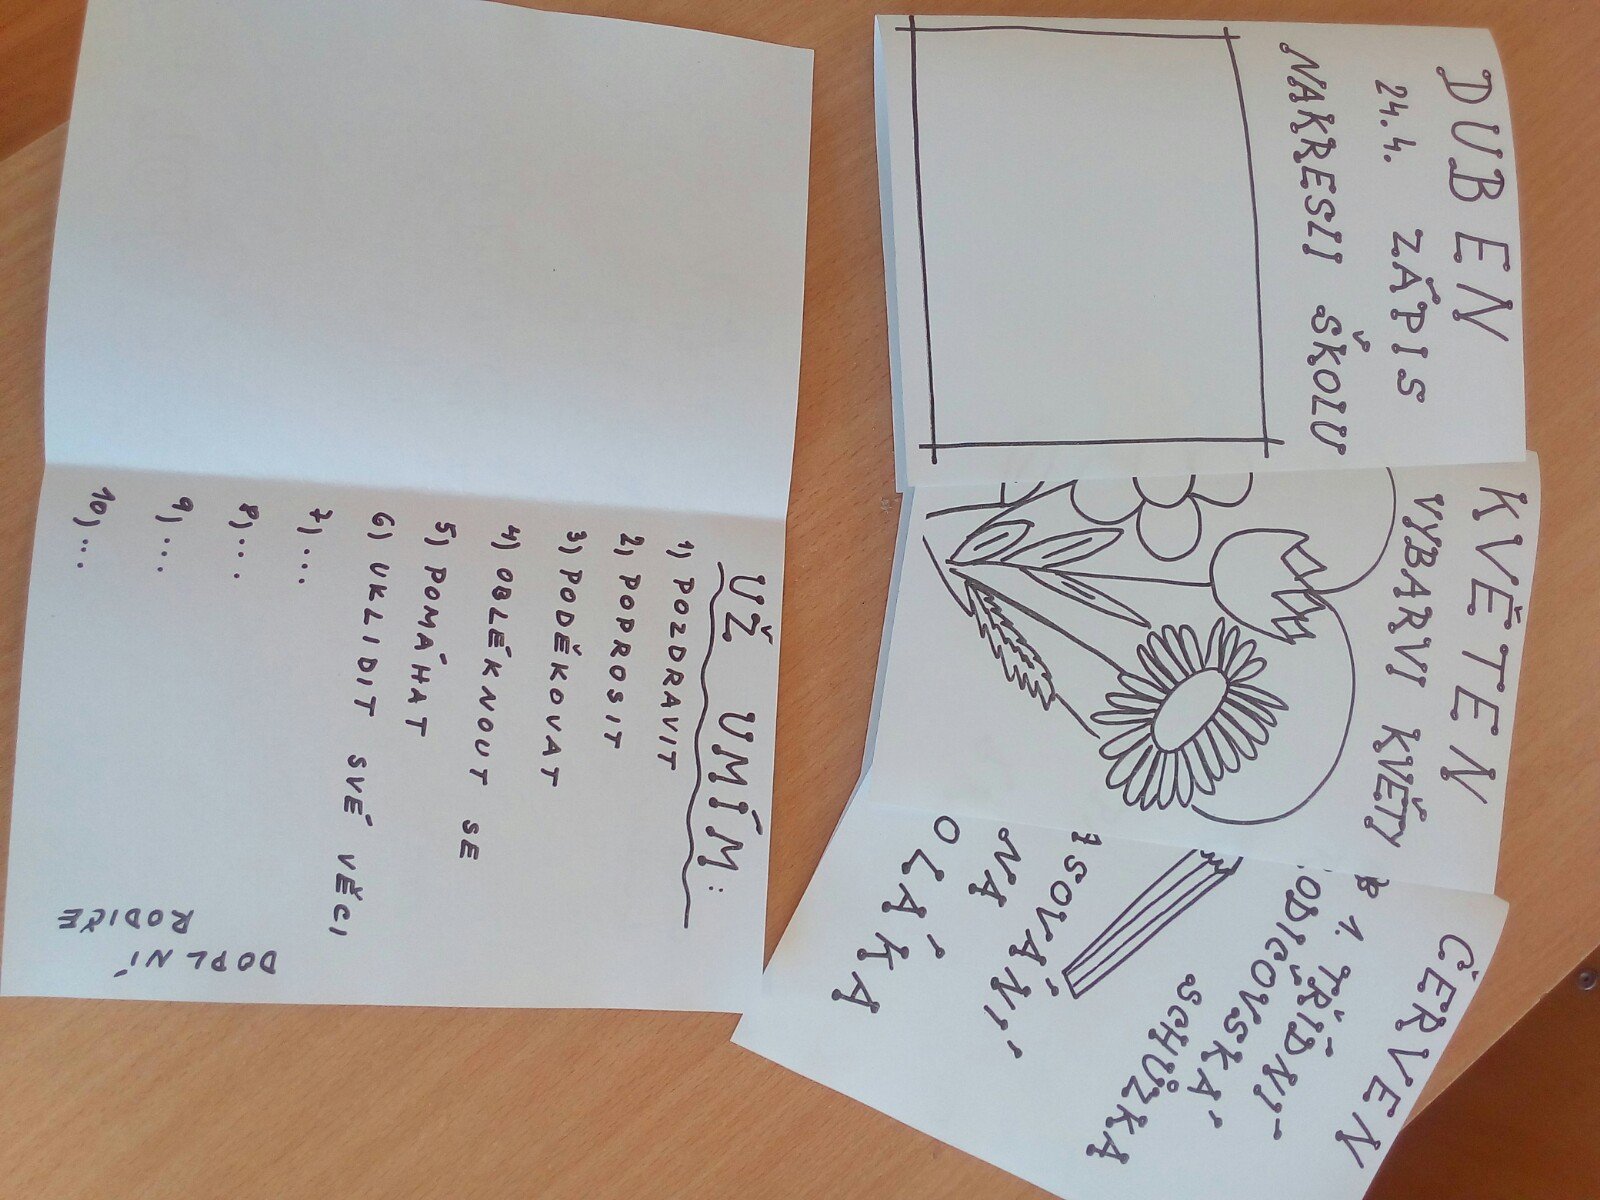 DUBEN
24.4. ZÁPIS
NAKRESLI ŠKOLU
KVĚTEN
VYBARVI KVĚTY
ČERVEN
1. TŘÍDNÍ
SCHŮZKA
NA
UŽ UMÍM:
1) POZDRAVIT
2) POPROSIT
3) PODĚKOVAT
4) OBLÉKNOUT SE
5) POMÁHAT
6) UKLIDIT SVÉ VĚCI
7) ...
8) ...
9) ...
10) ...
DOPLNÍ
RODIČE